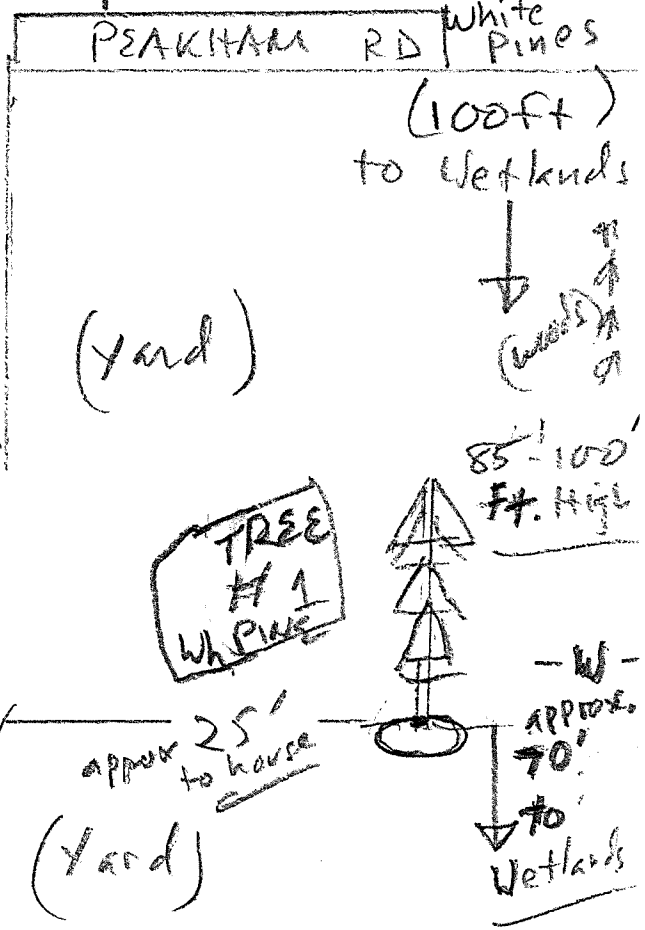 PEAKHAM RD
White
Pines
(100ft)
to Wetlands
(woods)
(Yard)
85'-100'
Ft. High
TREE
# 1
Wh PINE
- W -
approx.
70'
to
Wetlands
approx 25'
to house
(Yard)